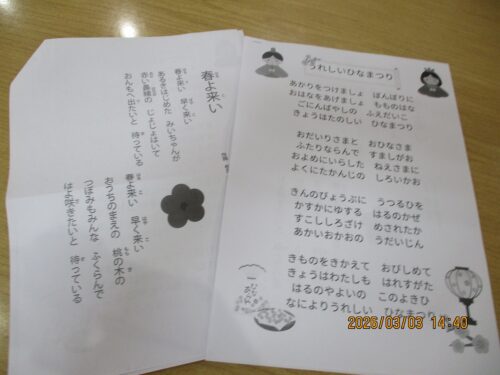 春よ来い
春よ来い 早く来い
あるきはじめた みいちゃんが
赤い鼻緒の じょじょはいて
おんもへ出たいと 待っている
春よ来い 早く来い
おうちのまえの 桃の木の
つぼみもみんな ふくらんで
はよ咲きたいと 待っている
うれしいひなまつり
あかりをつけましょ ぼんぼりに
おはなをあげましょ もものはな
ごにんばやしの ふえだいこ
きょうはたのしい ひなまつり
おだいりさまと おひなさま
ふたりならんで すましがお
およめにいらした ねえさまに
よくにたかんじの しろいかお
きんのびょうぶに うつるひを
かすかにゆする はるのかぜ
すこししろざけ めされたか
あかいおかおの うだいじん
きものをきかえて おびしめて
きょうはわたしも はれすがた
はるのやよいの このよきひ
なによりうれしい ひなまつり
2026/03/03 14:40